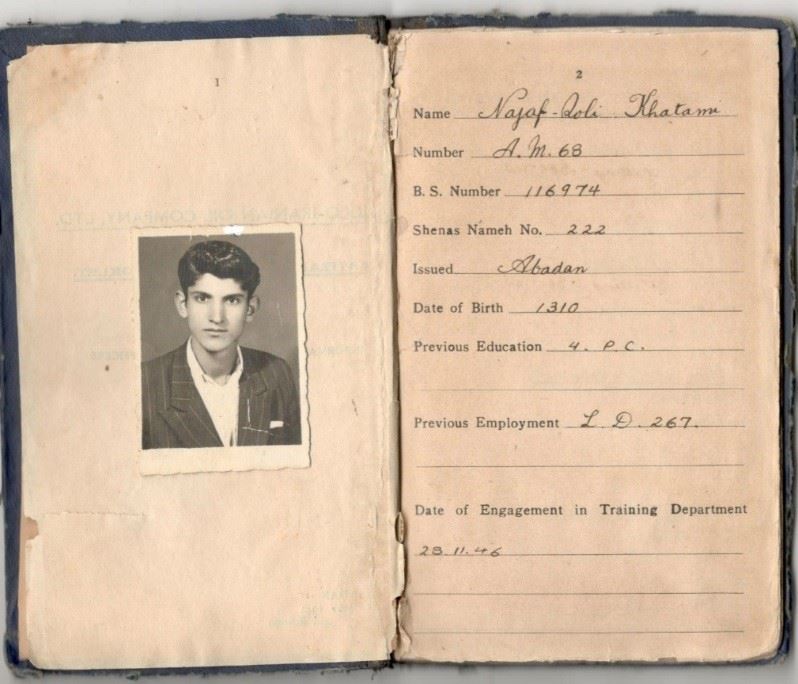 1
2
Name Najaf-Qoli Khatami
Number A.M. 68
B. S. Number 116974
Shenas Nameh No. 222
Issued Abadan
Date of Birth 1310
Previous Education 4. P.C.
Previous Employment L. D. 267.
Date of Engagement in Training Department
23.11.46